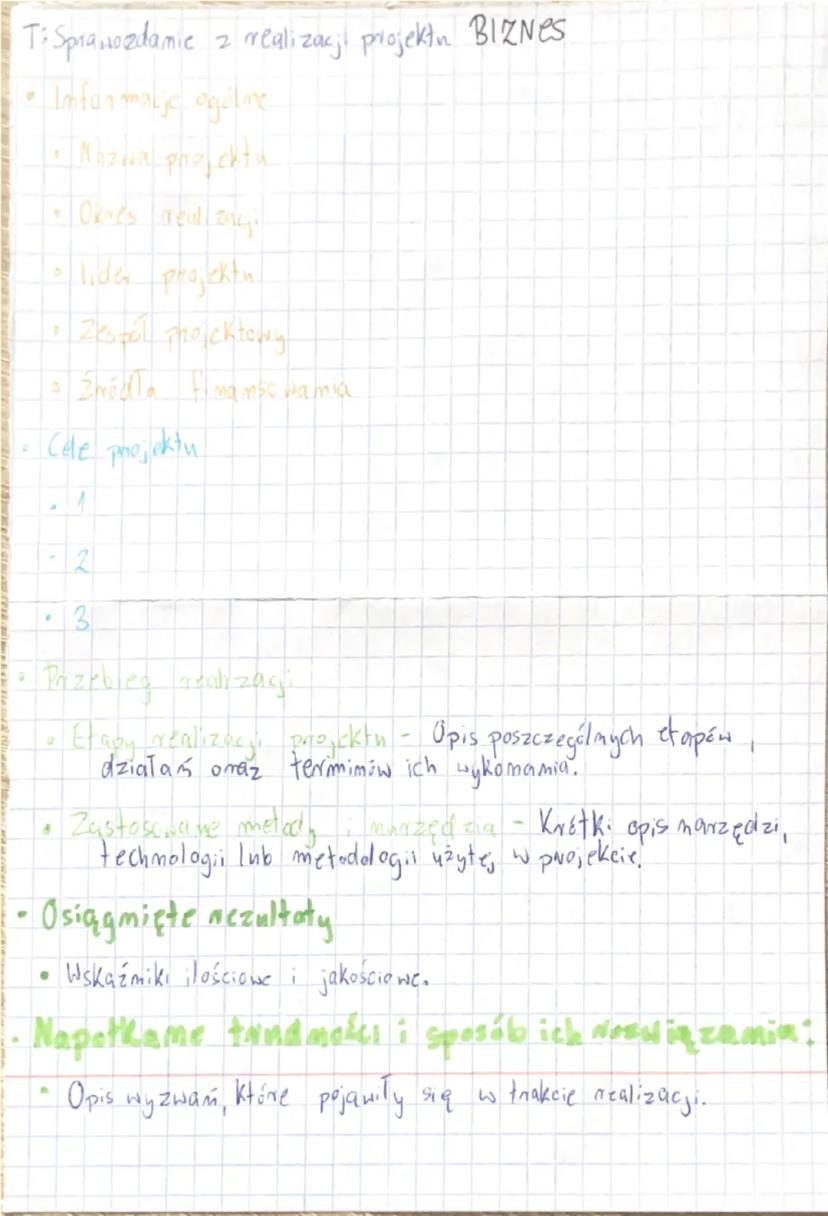 T: Sprawozdanie z realizacji projektu BIZNES
• Informacje ogólne
• Nazwa projektu
• Okres realizacji
• lider projektu
• Zespół projektowy
• Źródła finansowania
• Cele projektu
• 1
• 2
• 3
• Przebieg realizacji
• Etapy realizacji projektu - Opis poszczególnych etapów,
działań oraz terminów ich wykonania.
• Zastosowane metody i narzędzia - Krótki opis narzędzi,
technologii lub metodologii użytej w projekcie.
• Osiągnięte rezultaty
• Wskaźniki ilościowe i jakościowe.
• Napotkane trudności i sposób ich rozwiązania:
• Opis wyzwań, które pojawiły się w trakcie realizacji.